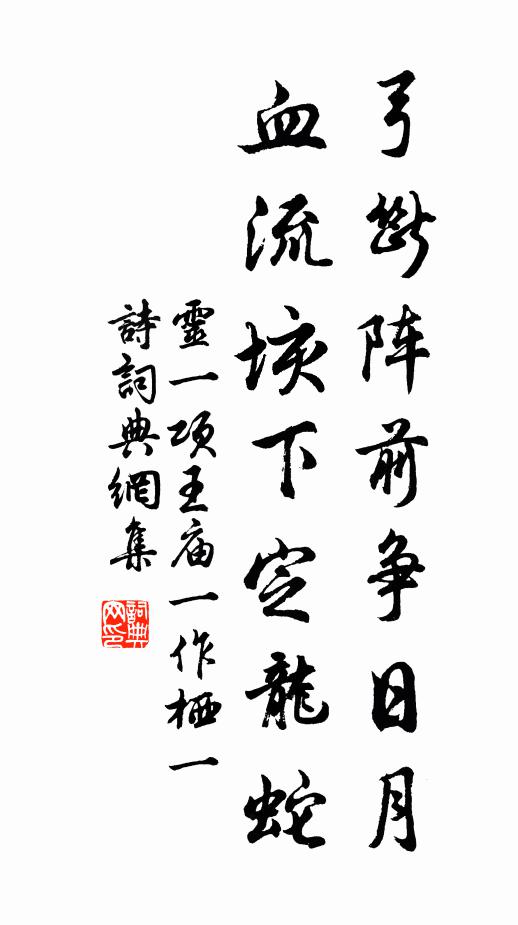 弓断阵前争日月
血流垓下定龍蛇
靈一项王庙一作栖一
詩詞典網集
詞典
网印